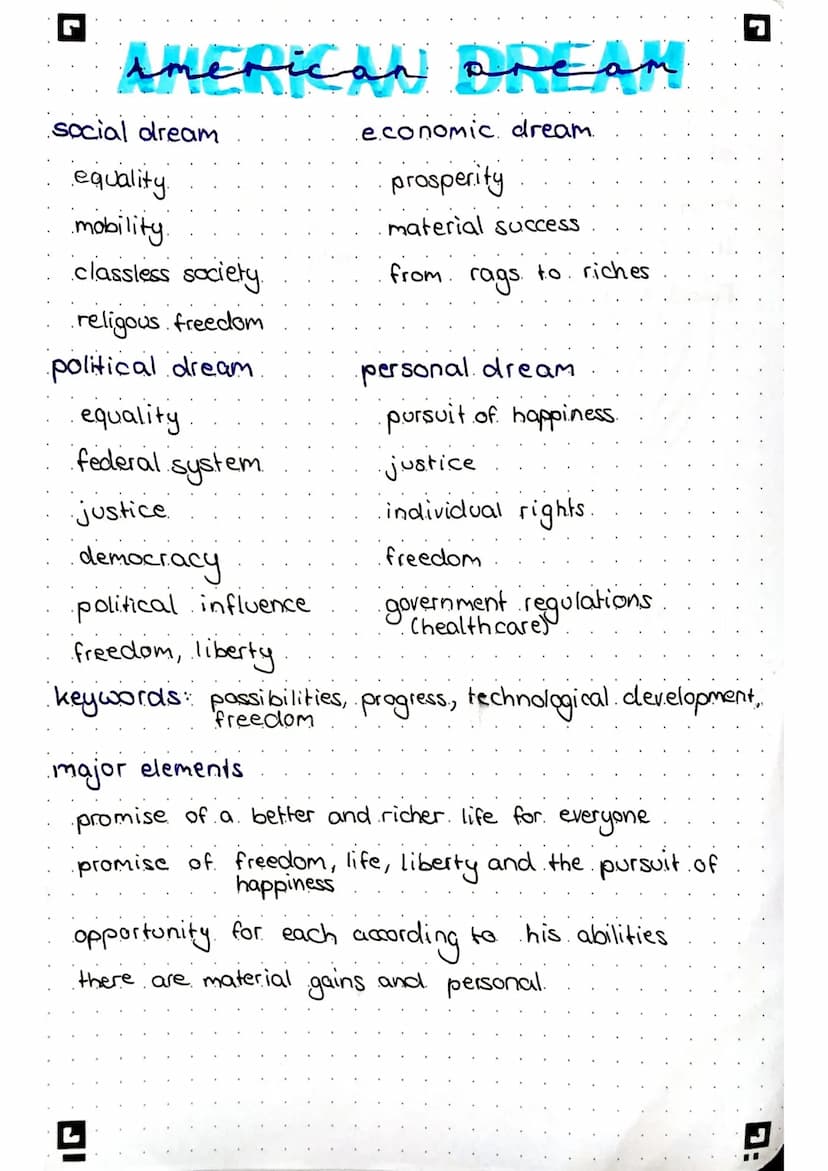 AMERICAN DREAM
American Dream
social dream
equality
mobility
classless society
religous freedom
economic dream
prosperity
material success
from rags to riches
political dream
equality
federal system
justice
democracy
political influence
freedom, liberty
personal dream
pursuit of happiness
justice
individual rights
freedom
government regulations
(healthcare)
keywords: possibilities, progress, technological development,
freedom
major elements
promise of a better and richer life for everyone
promise of freedom, life, liberty and the pursuit of
happiness
opportunity for each according to his abilities
there are material gains and personal